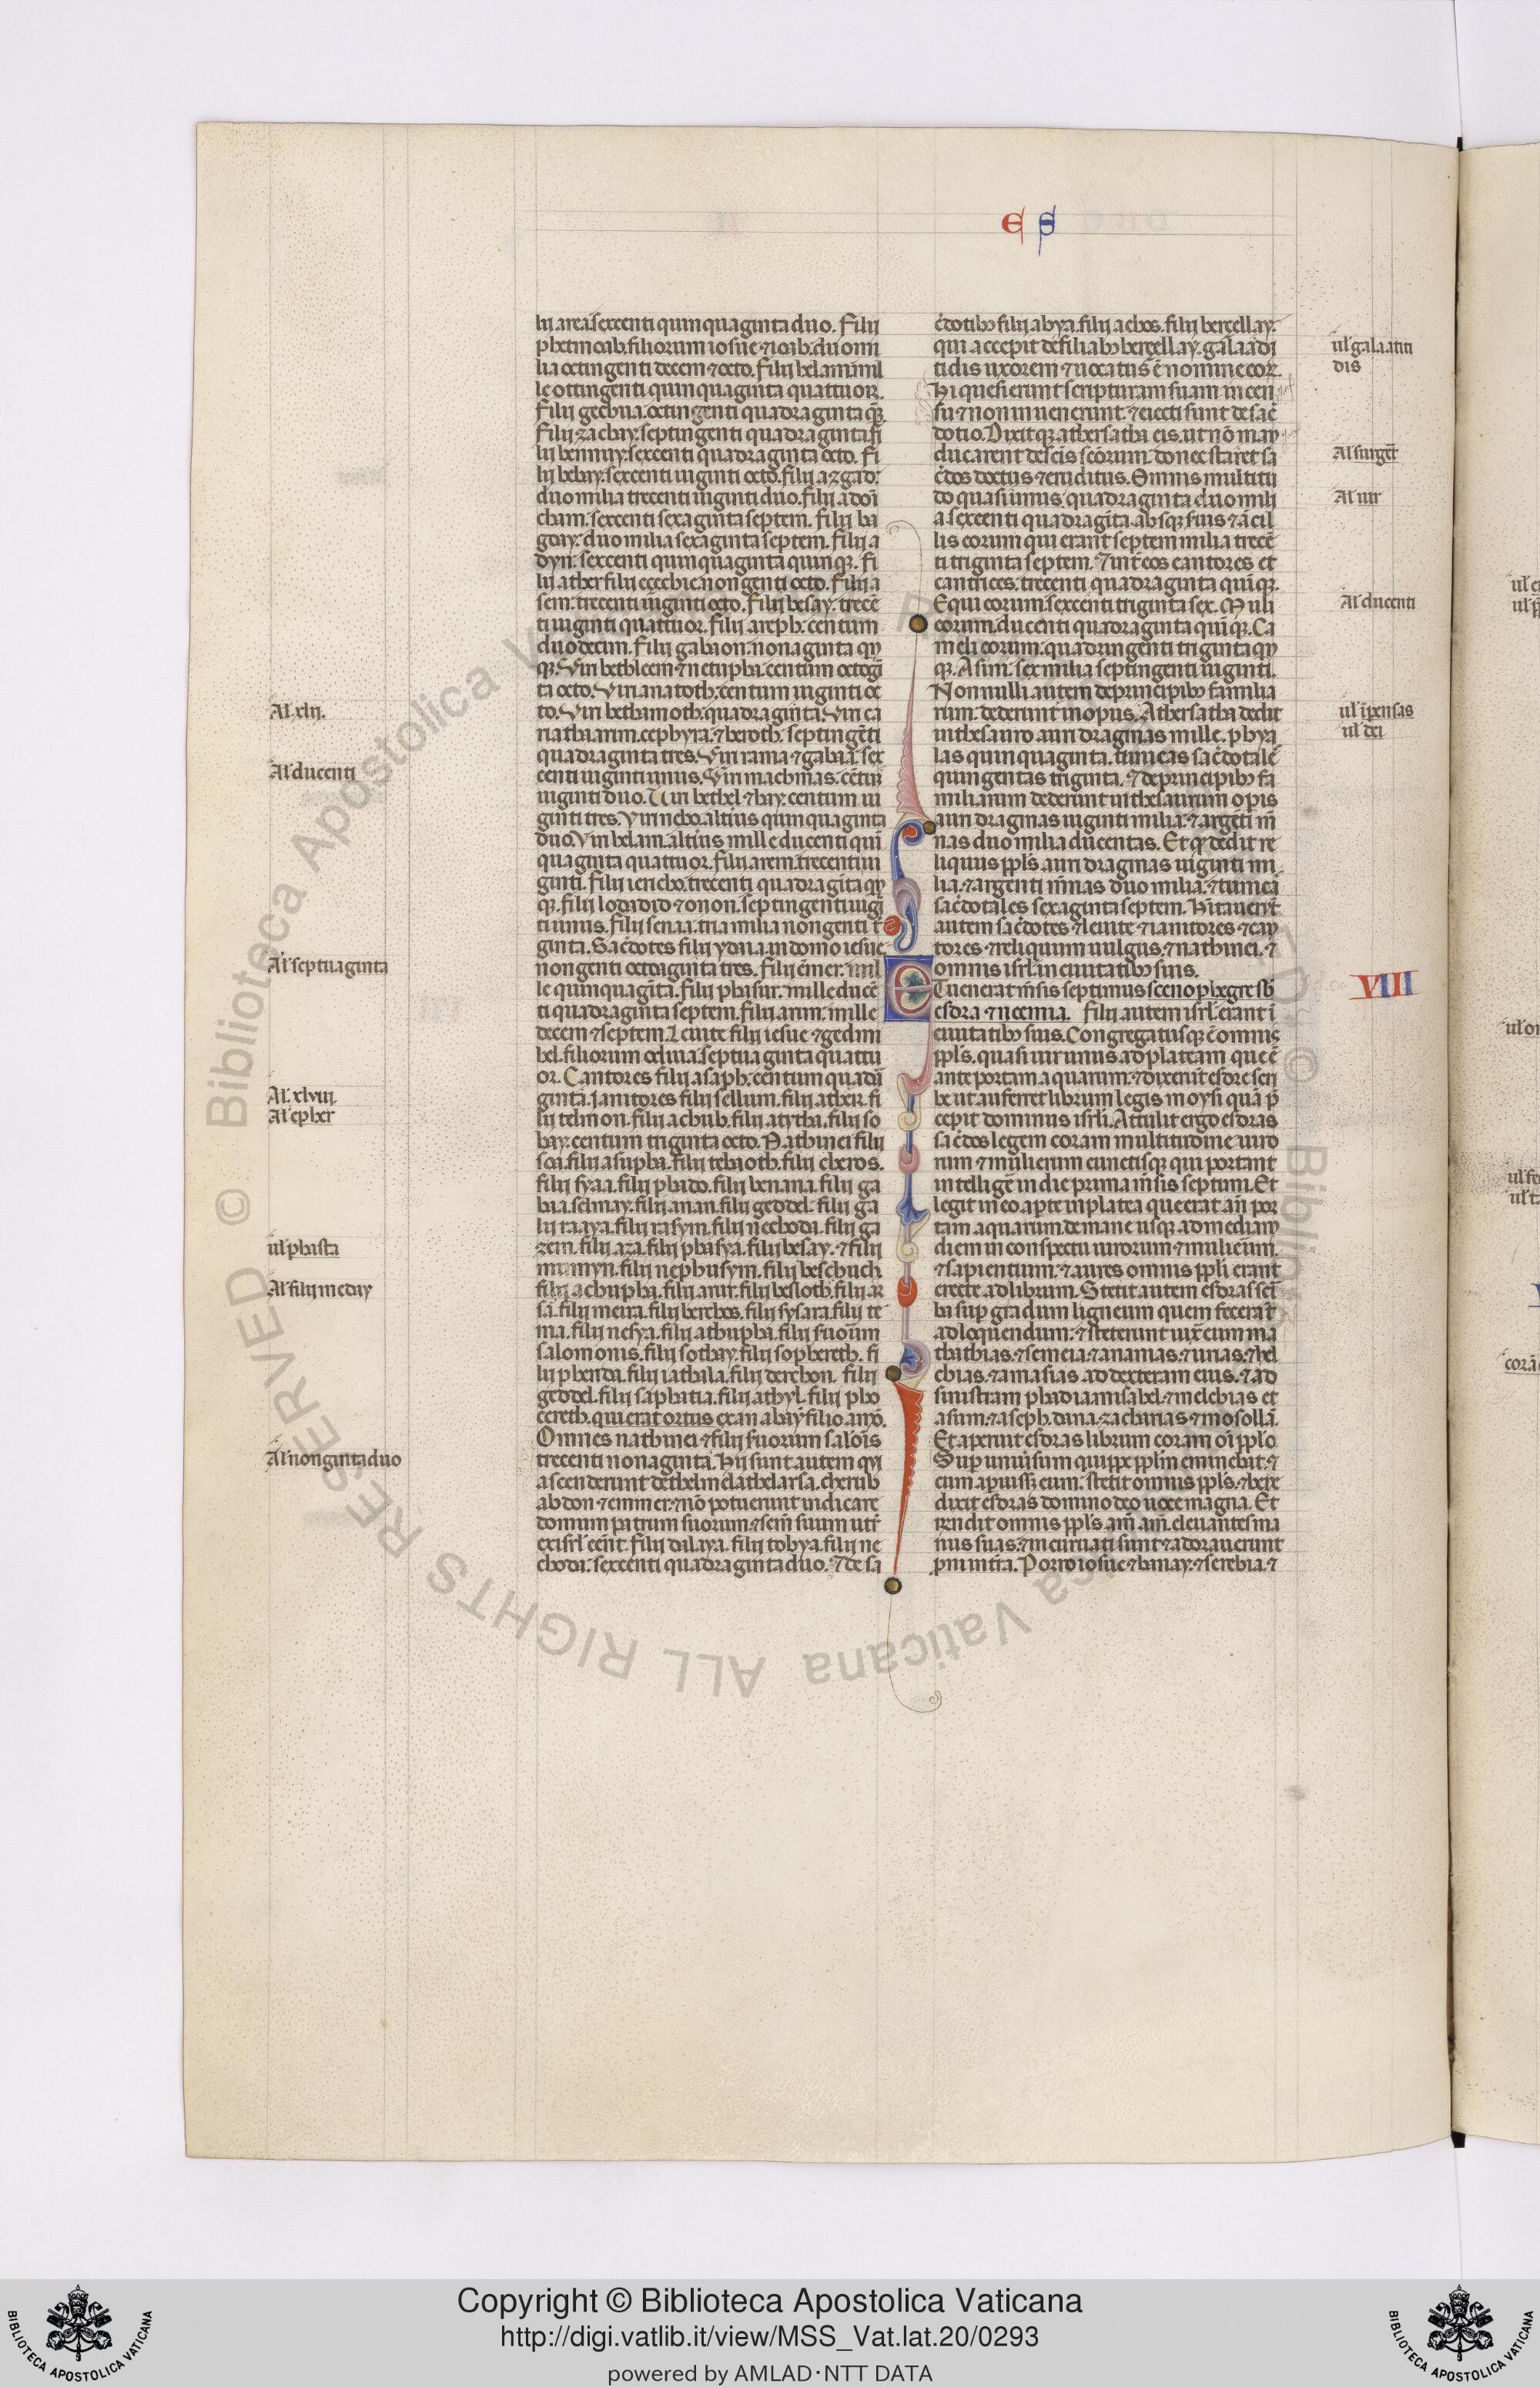 E S
lij area. sexcenti quinquaginta duo. Filij
phetmoab. filiorum iosue ⁊ ioab. duo mi
lia octingenti decem ⁊ octo. filij helam. mil
le ottingenti quinquaginta quattuor.
Filij gechua. octingenti quadraginta qͣꝫ.
Filij zachay. septingenti quadraginta. fi
lij bennuy. sexcenti quadraginta octo. fi
lij bebay. sexcenti uiginti octo. filij azgad.
duo milia trecenti uiginti duo. filij adoni
cham. sexcenti sexaginta septem. filij ba
goay. duo milia sexaginta septem. filij a
dyn. sexcenti quinquaginta quinqꝫ. fi
lij ather filij ezechie. nongenti octo. filij a
sem. trecenti uiginti octo. filij besay. trecē
ti uiginti quattuor. filij areph. centum
duodecim. filij gabaon. nonaginta qu
qꝫ. Viri bethleem ⁊ netupha. centum octogī
ta octo. Viri anatoth. centum uiginti oc
to. Viri bethamoth. quadraginta. Viri ca
riathiarim. cephyra. ⁊ beroth. septingēti
quadraginta tres. Viri rama ⁊ gabaa. sex
centi uiginti unus. Viri machmas. cētum
uiginti duo. Viri bethel ⁊ hay. centum ui
ginti tres. Viri nebo. altius quinquaginta
duo. Viri helam. altius mille ducenti quī
quaginta quattuor. filij arem. trecenti ui
ginti. filij iericho. trecenti quadragīta qu
qꝫ. filij lodadid ⁊ onon. septingenti uigī
ti unus. filij senaa. tria milia nongenti tͥ
ginta. Sac̄dotes filij ydaia. in domo iesue
nongenti octoaginta tres. filij ēmer. mil
le quinquagīta. filij phasur. mille ducē
ti quadraginta septem. filij arim. mille
decem ⁊ septem. Leuite filij iesue ⁊ gedmi
hel. filiorum odiua. septuaginta quattu
or. Cantores filij asaph. centum quadrī
ginta. Janitores filij sellum. filijather. fi
lij telmon. filij achub. filij atytha. filij so
bay. centum triginta octo. Nathinei filij
soa. filij asupha. filij tebaoth. filij cheros.
filij syaa. filij phado. filij benana. filij ga
bia. selmay. filij anan. filij geddel. filij ga
lij raaya. filij rasym. filij nechoda. filij ga
zem. filij aza. filij phasya. filij besay. ⁊ filij
mumyn. filij nephusym. filij beschuch.
filij achupha. filij arur. filij besloth. filij ar
sa. filij meira. filij berchos. filij sysara. filij te
ma. filij nesya. filij athupha. filij suorum
salomonis. filij sothay. filij sophereth. fi
lij phenda. filij iathala. filij derebon. filij
geddel. filij saphatia. filij athyl. filij pho
cereth. qui erat ortus ex an abay filio amō.
Omnes nathinei ⁊ filij suorum salōis
trecenti nonaginta. Hij sunt autem qui
ascenderunt dethelmelathelarsa. cherub
abdon ⁊ emmer. ⁊ nō potuerunt indicare
domum patrum suorum. ⁊ sem̄ suum utr̄
ex isrl̄ eēnt. filij dalaya. filij tobya. filij ne
choda. sexcenti quadraginta duo. ⁊ de sa
Al. xlij.
Al ducenti
Al septuaginta
Al. xlviij.
Al epher
ul phasta
Al filij meday
Al nongintaduo
c̄dotibꝫ filij abya. filij achos. filij bergellay.
qui accepit de filiabꝫ bergellay. galaadi
tidis uxorem. ⁊ uocatus ē nomine eoꝝ.
Hi quesierunt scripturam suam in cen
su. ⁊ non inuenerunt. ⁊ eiecti sunt de sac̄
dotio. Dixitqꝫ athersatha eis. ut nō man
ducarent de scīs scōrum. donec staret sa
c̄dos doctus ⁊ eruditus. Omnis multitu
do quasi unus. quadraginta duo mili
a sexcenti quadragīta. absqꝫ suis ⁊ ācil
lis eorum qui erant septem milia trecē
ti triginta septem. ⁊ int̄ eos cantores et
cantrices. trecenti quadraginta quīqꝫ.
Equi eorum. sexcenti triginta sex. Muli
eorum. ducenti quadraginta quīqꝫ. Ca
meli eorum. quadringenti triginta qu
qꝫ. Asini. sex milia septingenti uiginti.
Nonnulli autem de principibꝫ familia
rum. dederunt in opus. Athersatha dedit
in thesauro auri dragmas mille. phya
las quinquaginta. tunicas sac̄dotalē
quingentas triginta. ⁊ de principibꝫ fa
miliarum dederunt in thesaurum opis
auri dragmas uiginti milia. ⁊ argēti m̄
nas duo milia ducentas. Et qͥ dedit re
liquus ppl̄s auri dragmas uiginti mi
lia. ⁊ argenti m̄nas duo milia. ⁊ tunicā
sac̄dotales sexaginta septem. Hitauer̄t
autem sac̄dotes ⁊ leuite ⁊ ianitores ⁊ can
tores. ⁊ reliquum uulgus. ⁊ nathinei. ⁊
omnis isrl̄ in ciuitatibꝫ suis.
ETuenerat m̄sis septimus scenophegie sb̄
esdra ⁊ neemia. Filij autem isrl̄ erant ī
ciuitatibꝫ suis. Congregatusqꝫ ē omnis
ppl̄s. quasi uir unus ad plateam que ē
ante portam aquarum. ⁊ dixerūt esdre scri
be ut aufferret librum legis moysi quā p̄
cepit dominus isrl̄i. Attulit ergo esdras
sac̄dos legem coram multitudine uiro
rum ⁊ mulierum cunctisqꝫ qui portant
intelligē in die prima m̄sis septimi. Et
legit in eo apte in platea que erat an̄ por
tam aquarum. de mane usqꝫ ad mediam
diem in conspectu uirorum ⁊ mulierum.
⁊ sapientium. ⁊ aures omnis ppl̄i erant
erecte ad librum. Stetit autem esdras scri
ba sup gradum ligneum quem fecerat
ad loquendum. ⁊ steterunt iux̄ eum ma
thathias. ⁊ semeia. ⁊ ananias. ⁊ urias. ⁊ hel
chias. ⁊ amasias ad dexteram eius. ⁊ ad
sinistram phadiamisahel. ⁊ melchias et
asum. ⁊ aseph. dana. zacharias ⁊ mosollā.
Et aperuit esdras librum coram oī ppl̄o
Sup uniūsum quippe ppl̄m eminebat. ⁊
cum apuisꝫ eum. stetit omnis ppl̄s. ⁊ bene
dixit esdras domino deo uoce magna. Et
rn̄dit omnis ppl̄s am̄ am̄. eleuantes ma
nus suas. ⁊ incuruati sunt ⁊ adorauerunt
pni in tr̄a. Porro iosue ⁊ banay. ⁊ serebia. ⁊
ul galaatiti
dis
Al surgēt
Al uir
Al ducenti
ul īpensas
ul dei
VIII
Copyright © Biblioteca Apostolica Vaticana
http://digi.vatlib.it/view/MSS_Vat.lat.20/0293
powered by AMLAD·NTT DATA
BIBLIOTECA APOSTOLICA VATICANA
BIBLIOTECA APOSTOLICA VATICANA